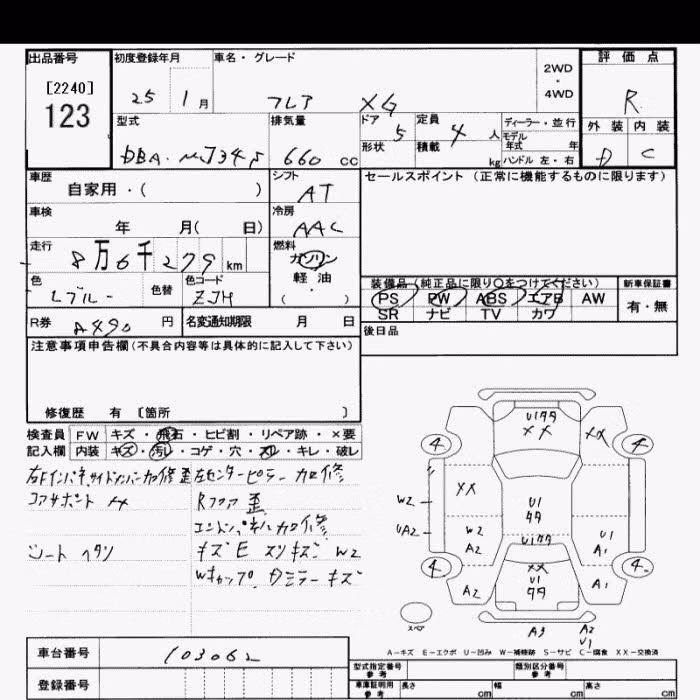 出品番号 初度登録年月 車名・グレード 評価点
[2240] 2WD・4WD
123 25 1月 フレア XG R
型式 排気量 ドア 5 定員 4人 ディーラー・並行 外装 内装
モデル年式 年
DBA-MJ34S 660 cc 形状 積載 kg ハンドル 左・右 D C
車歴 シフト セールスポイント (正常に機能するものに限ります)
自家用・( ) AT
車検 冷房
年 月( 日) AAC
走行 燃料
8万6千279km ガソリン
軽油
( )
色 色替 色コード 装備品(純正品に限り〇をつけてください) 新車保証書
Lブルー ZJH PS PW ABS エアB AW 有・無
SR ナビ TV カワ
R券 円 名変通知期限 月 日 後日品
注意事項申告欄(不具合内容等は具体的に記入して下さい)
修復歴 有 〔箇所 〕
検査員 FW キズ・飛石・ヒビ割・リペア跡・×要
記入欄 内装 キズ・汚レ・コゲ・穴・スレ・キレ・破レ
コアサポート XX Rフロア 歪
エンドパネル加修
シート ヘタリ キズE スリキズ W2
Wキャップ Dミラーキズ
U1タタ
XX XX
4 4
XX
W2 U1
タタ
UA2 W2 U1
A2 U1タタ A1
4 XX 4
U1
A2 タタ A1
スペア
A3 A2
U1
A-キズ E-エクボ U-凹み W-補修跡 S-サビ C-腐食 XX-交換済
車台番号 103062
型式指定番号 参考 類別区分番号 参考
登録番号 車庫証明用 参考 長さ cm 幅 cm 高さ cm